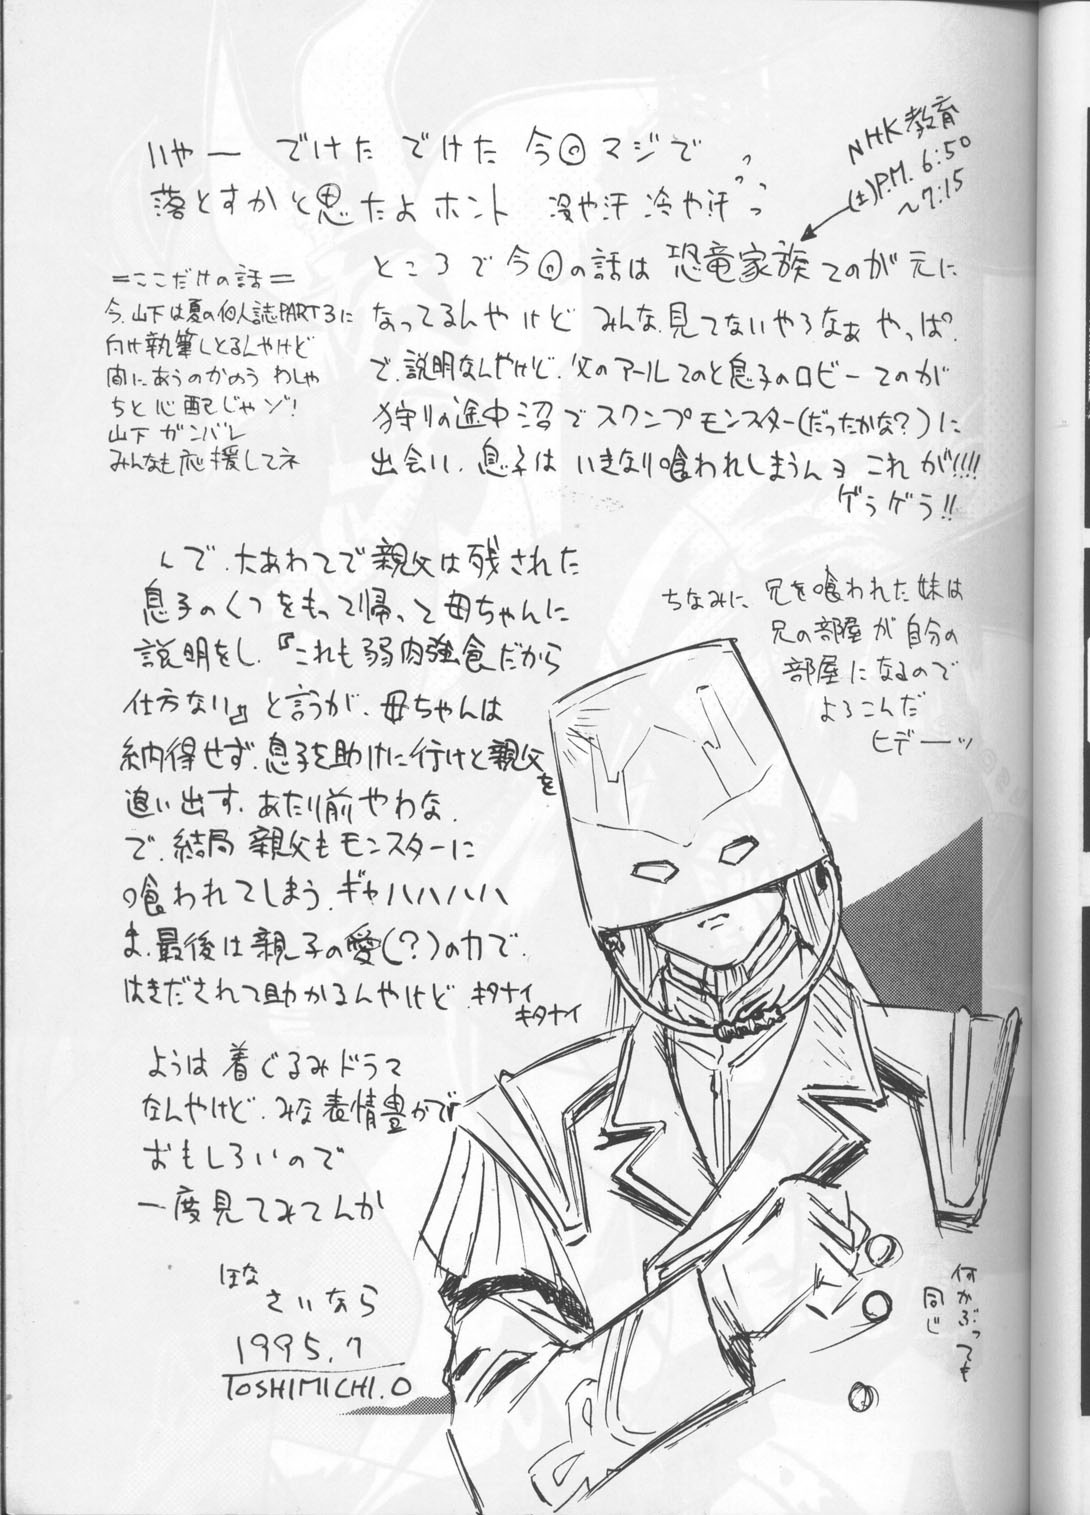 いやー でけた でけた 今回マジで
落とすかと思たよホント 冷や汗 冷や汗
NHK教育
(土)P.M. 6:50
〜7:15
ところで今回の話は 恐竜家族てのが元に
なってるんやけど みんな見てないやろなぁ やっぱ。
で、説明なんやけど、父のアールてのと息子のロビーてのが
狩りの途中沼でスワンプモンスター(だったかな?)に
出会い、息子は いきなり喰われしまうんヨ これが!!!!
ゲラゲラ!!
=ここだけの話=
今、山下は夏の個人誌PART3に
向け執筆しとるんやけど
間にあうのかのう わしゃ
ちと心配じゃゾ!
山下 ガンバレ
みんなも応援してネ
んで、大あわてで親父は残された
息子のくつをもって帰って母ちゃんに
説明をし、『これも弱肉強食だから
仕方ない』と言うが、母ちゃんは
納得せず、息子を助けに行けと親父を
追い出す、あたり前やわな、
で、結局 親父もモンスターに
喰われてしまう、ギャハハハハハ
ま、最後は親子の愛(?)の力で、
はきだされて助かるんやけど キタナイ
キタナイ
ちなみに 兄を喰われた妹は
兄の部屋が自分の
部屋になるので
よろこんだ
ヒデーッ
ようは着ぐるみドラマ
なんやけど、みな表情豊かで
おもしろいので
一度見てみてんか
ほな
さいなら
1995.7
TOSHIMICHI.O
何かぶっても
同じ